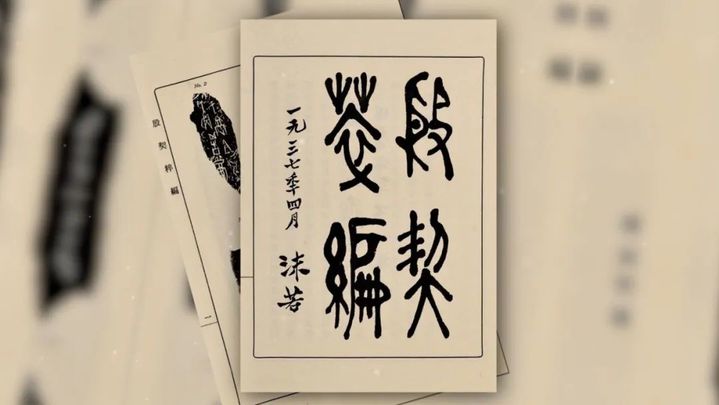 殷契
萃編
一九三七年四月
沫若
No. 2
殷契粹編
一